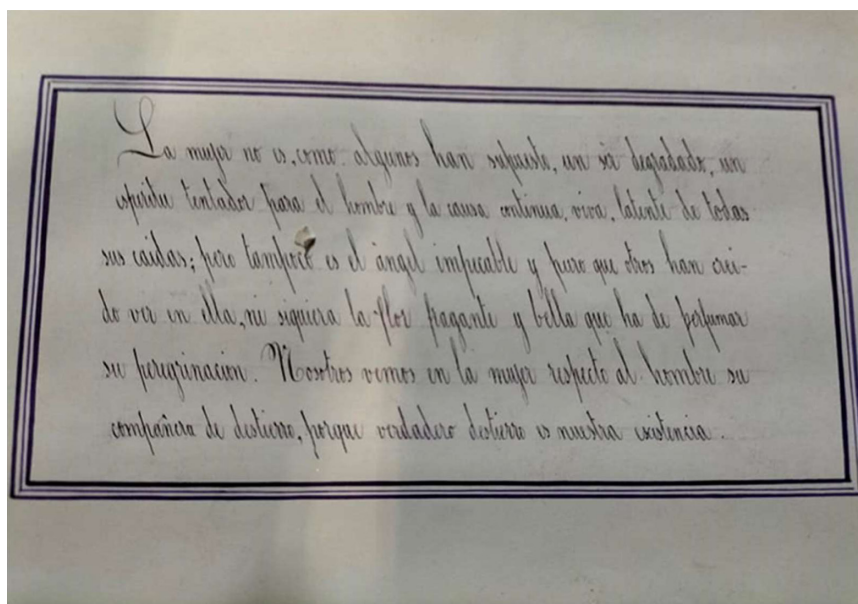 La mujer no es, como algunos han supuesto, un sér degradado, un
espiritu tentador para el hombre y la causa continua, viva, latente de todas
sus caidas; pero tampoco es el ángel impecable y puro que otros han crei-
do ver en ella, ni siquiera la flor fragante y bella que ha de perfumar
su peregrinacion. Nosotros vemos en la mujer respecto al hombre su
compañera de destierro, porque verdadero destierro es nuestra existencia.